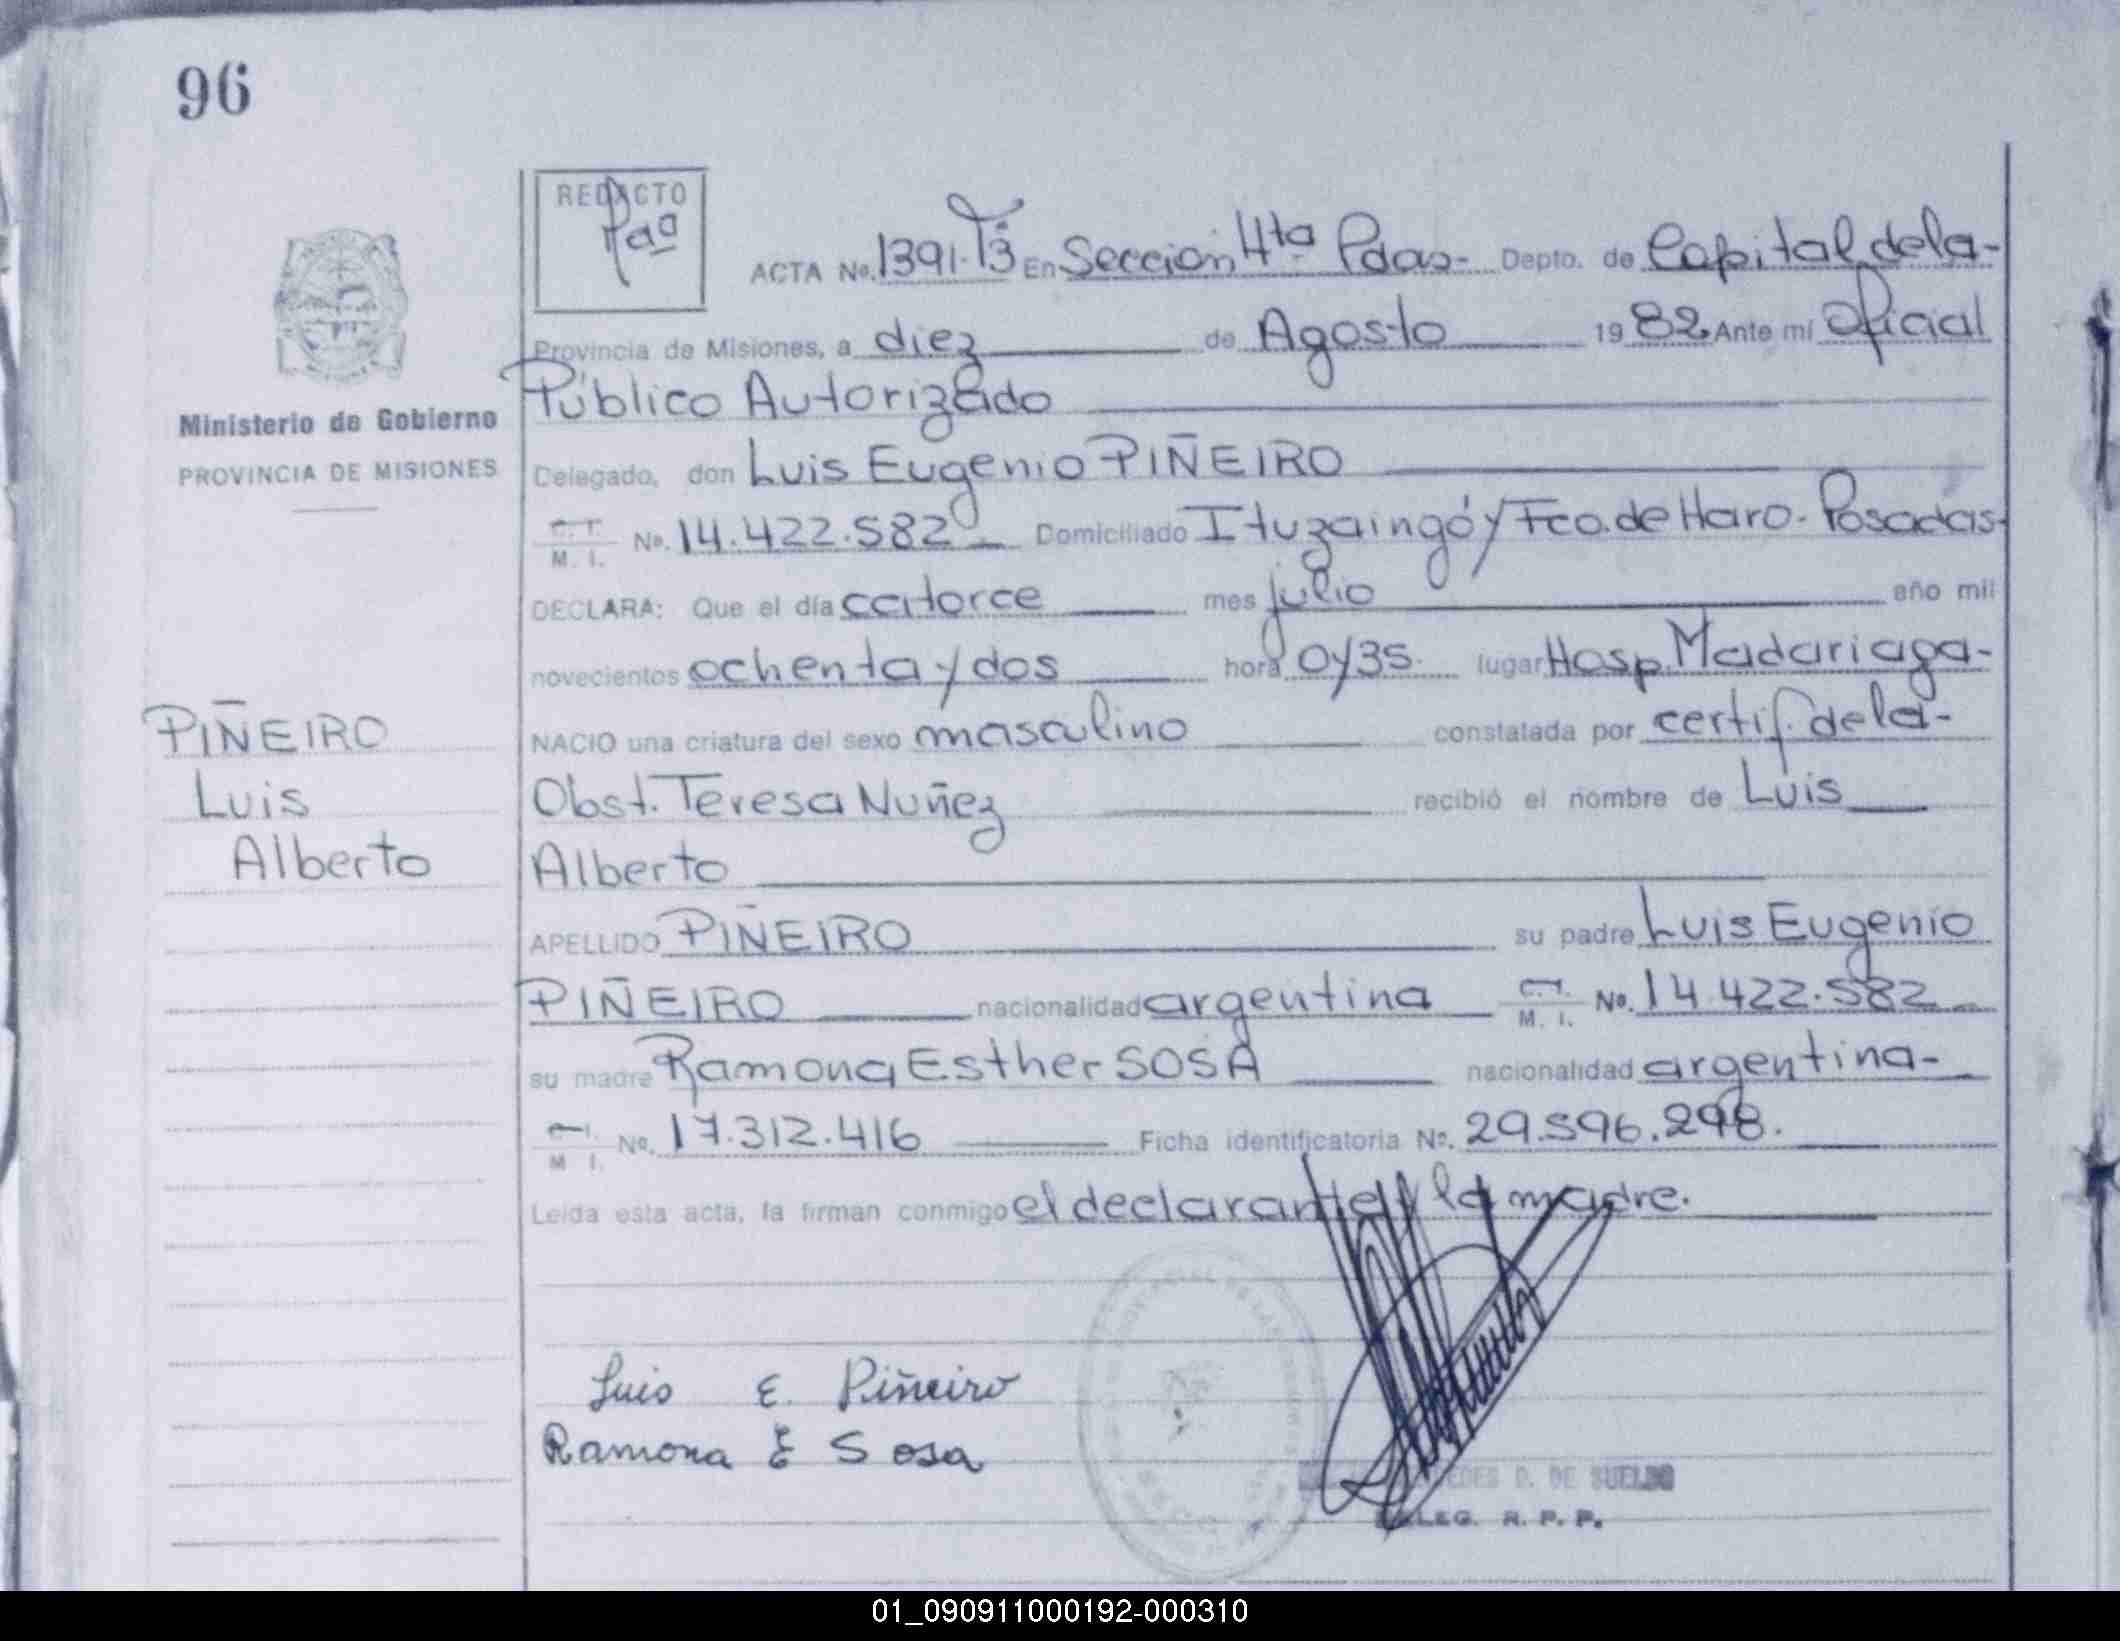 96
REDACTO
ACTA No. 1391. T3 En Sección 4ta Pdas- Depto. de Capital de la-
Provincia de Misiones, a diez de Agosto 1982 Ante mi Oficial
Público Autorizado
Ministerio de Gobierno
PROVINCIA DE MISIONES
Delegado, don Luis Eugenio PIÑEIRO
C. I. M. I. No. 14.422.582 Domiciliado Ituzaingó y Fco. de Haro. Posadas-
DECLARA: Que el día catorce mes julio año mil
novecientos ochenta y dos hora 0y35. lugar Hosp. Madariaga-
PIÑEIRO
Luis
Alberto
NACIO una criatura del sexo masculino constatada por certif. de la-
Obst. Teresa Nuñez recibió el nombre de Luis
Alberto
APELLIDO PIÑEIRO su padre Luis Eugenio
PIÑEIRO nacionalidad argentina C. I. M. I. No. 14.422.582
su madre Ramona Esther SOSA nacionalidad argentina-
C. I. M. I. No. 17.312.416 Ficha identificatoria No. 29.596.298.
Leida esta acta, la firman conmigo el declarante y la madre.
Luis E. Piñeiro
Ramona E Sosa
D. DE SUELDO
DELEG. R. P. P.
01_090911000192-000310